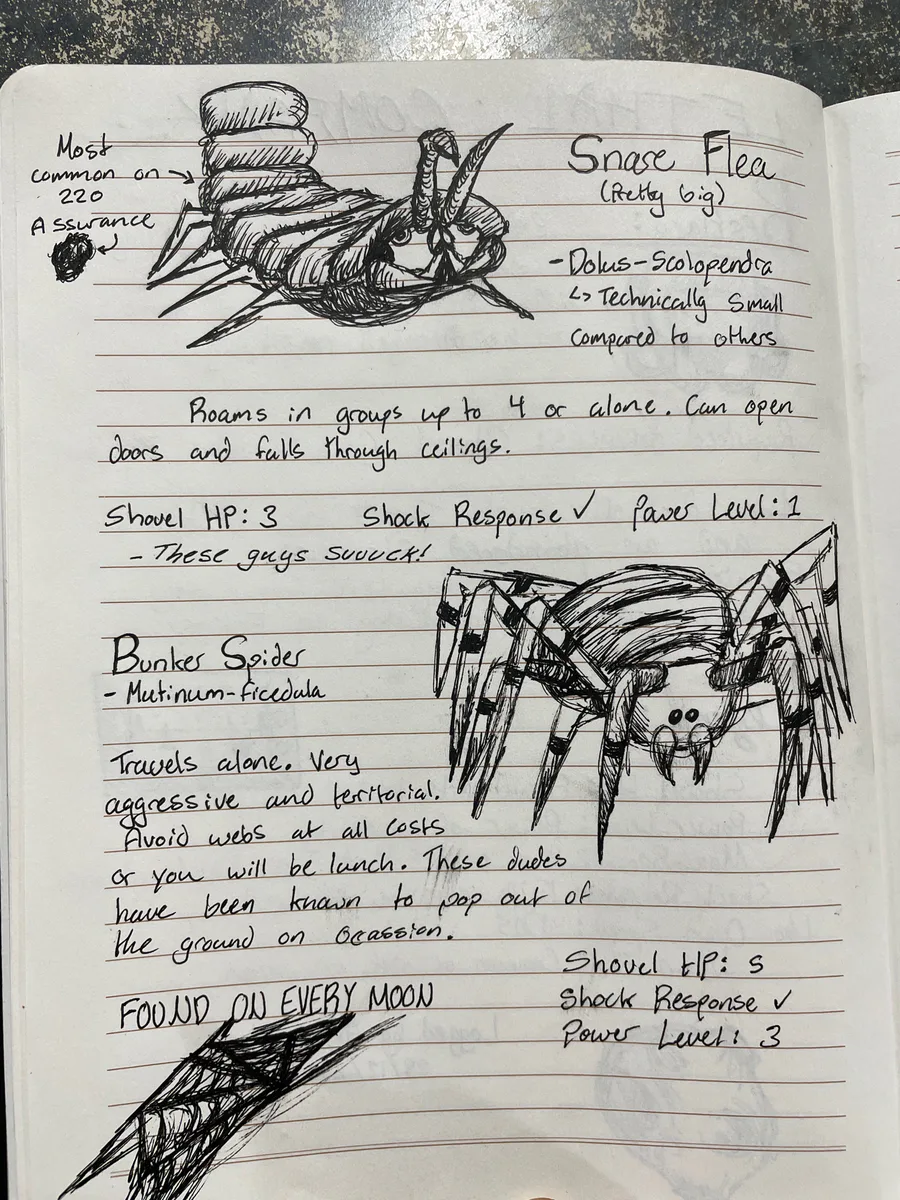 Most
common on
220
Assurance
Snare Flea
(Pretty big)
- Dolus-Scolopendra
↳ Technically Small
compared to others
Roams in groups up to 4 or alone. Can open
doors and falls through ceilings.
Shovel HP: 3 Shock Response ✓ Power Level: 1
- These guys Suuuck!
Bunker Spider
- Mutinum-ficedula
Travels alone. Very
aggressive and territorial.
Avoid webs at all costs
or you will be lunch. These dudes
have been known to pop out of
the ground on Ocassion.
Shovel HP: 5
FOUND ON EVERY MOON
Shock Response ✓
Power Level: 3